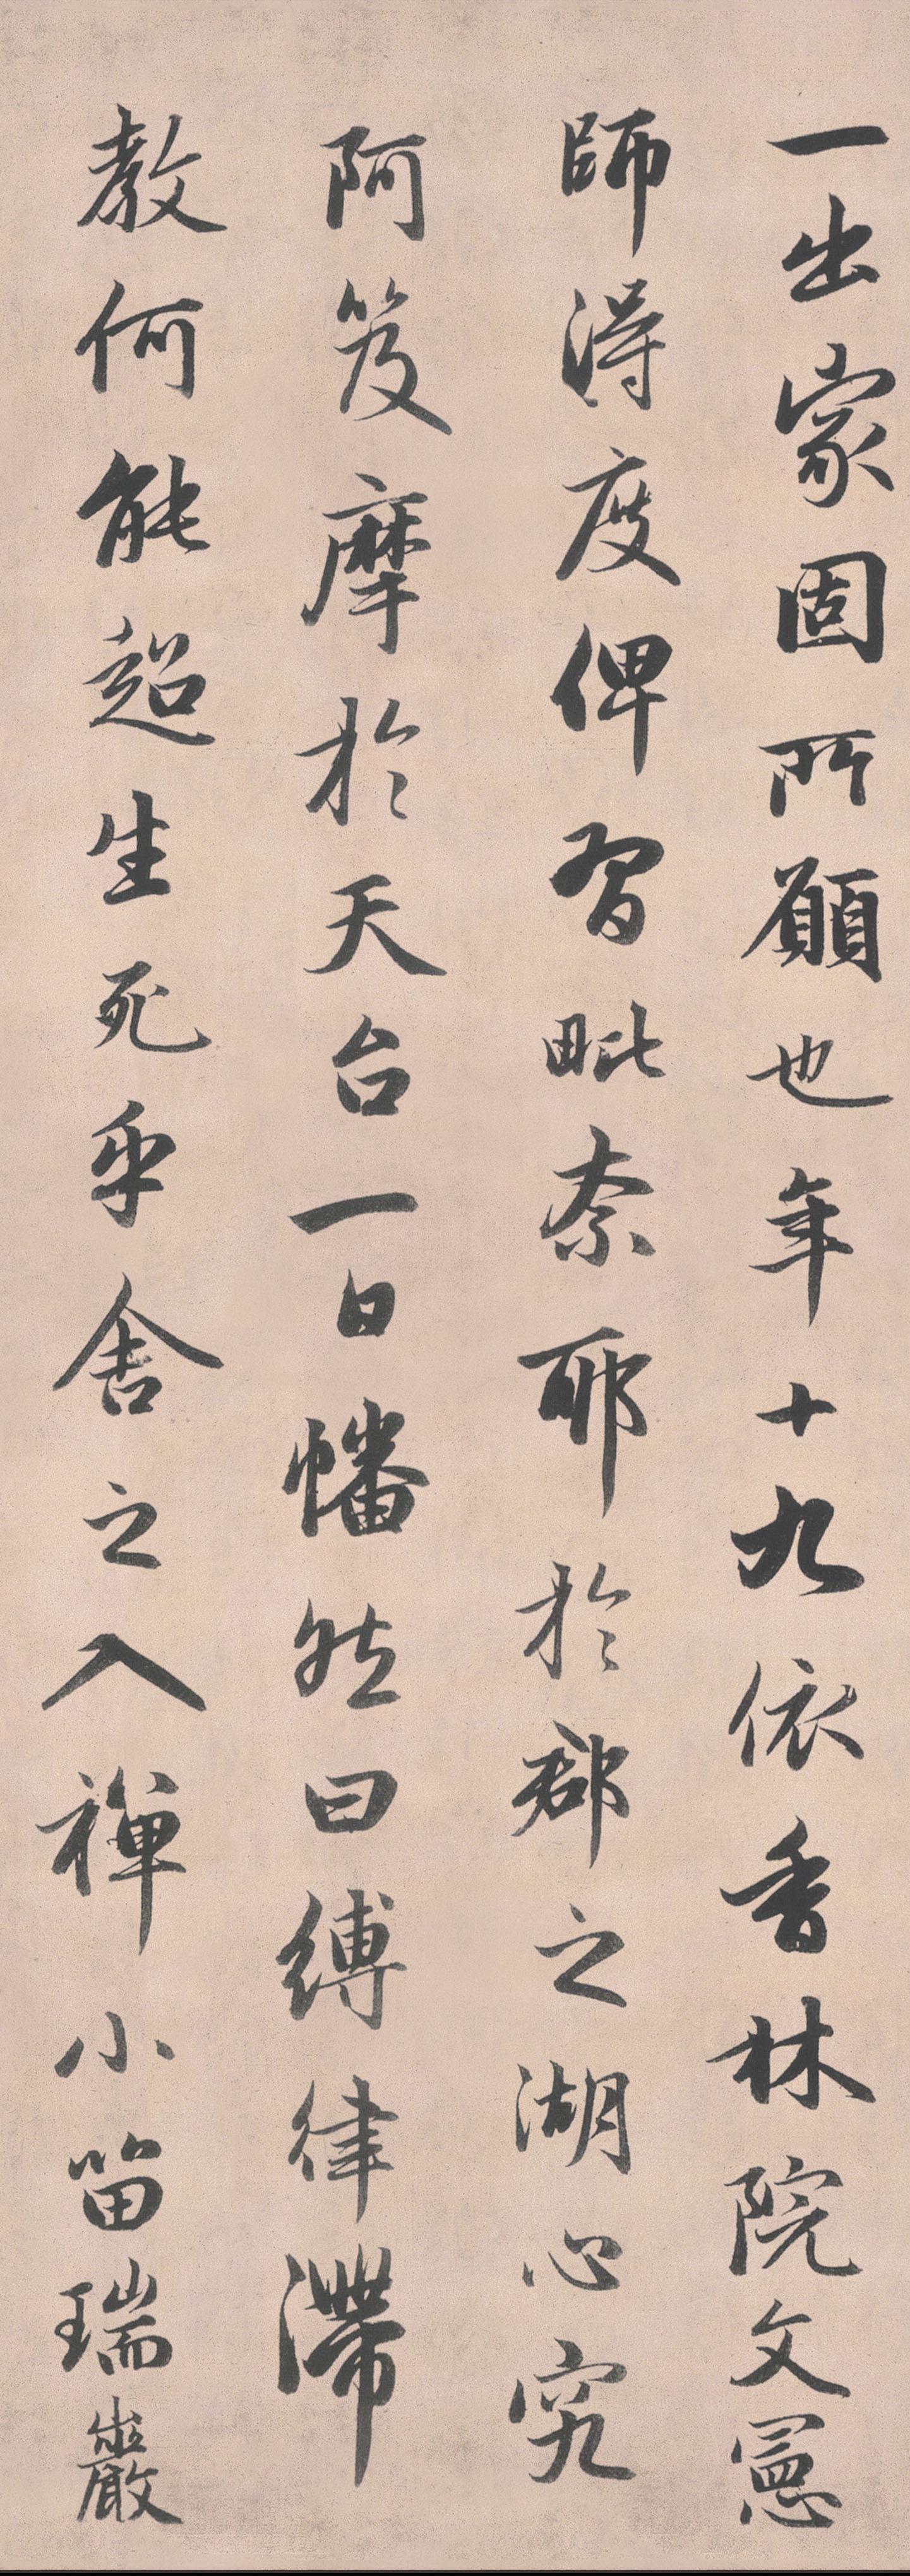 一出家固所願也年十九依香林院文憲
師得度俾習毗奈耶於郡之湖心究
阿笈摩於天台一日幡然曰縛律滯
教何能超生死乎舍之入禪小留瑞巖